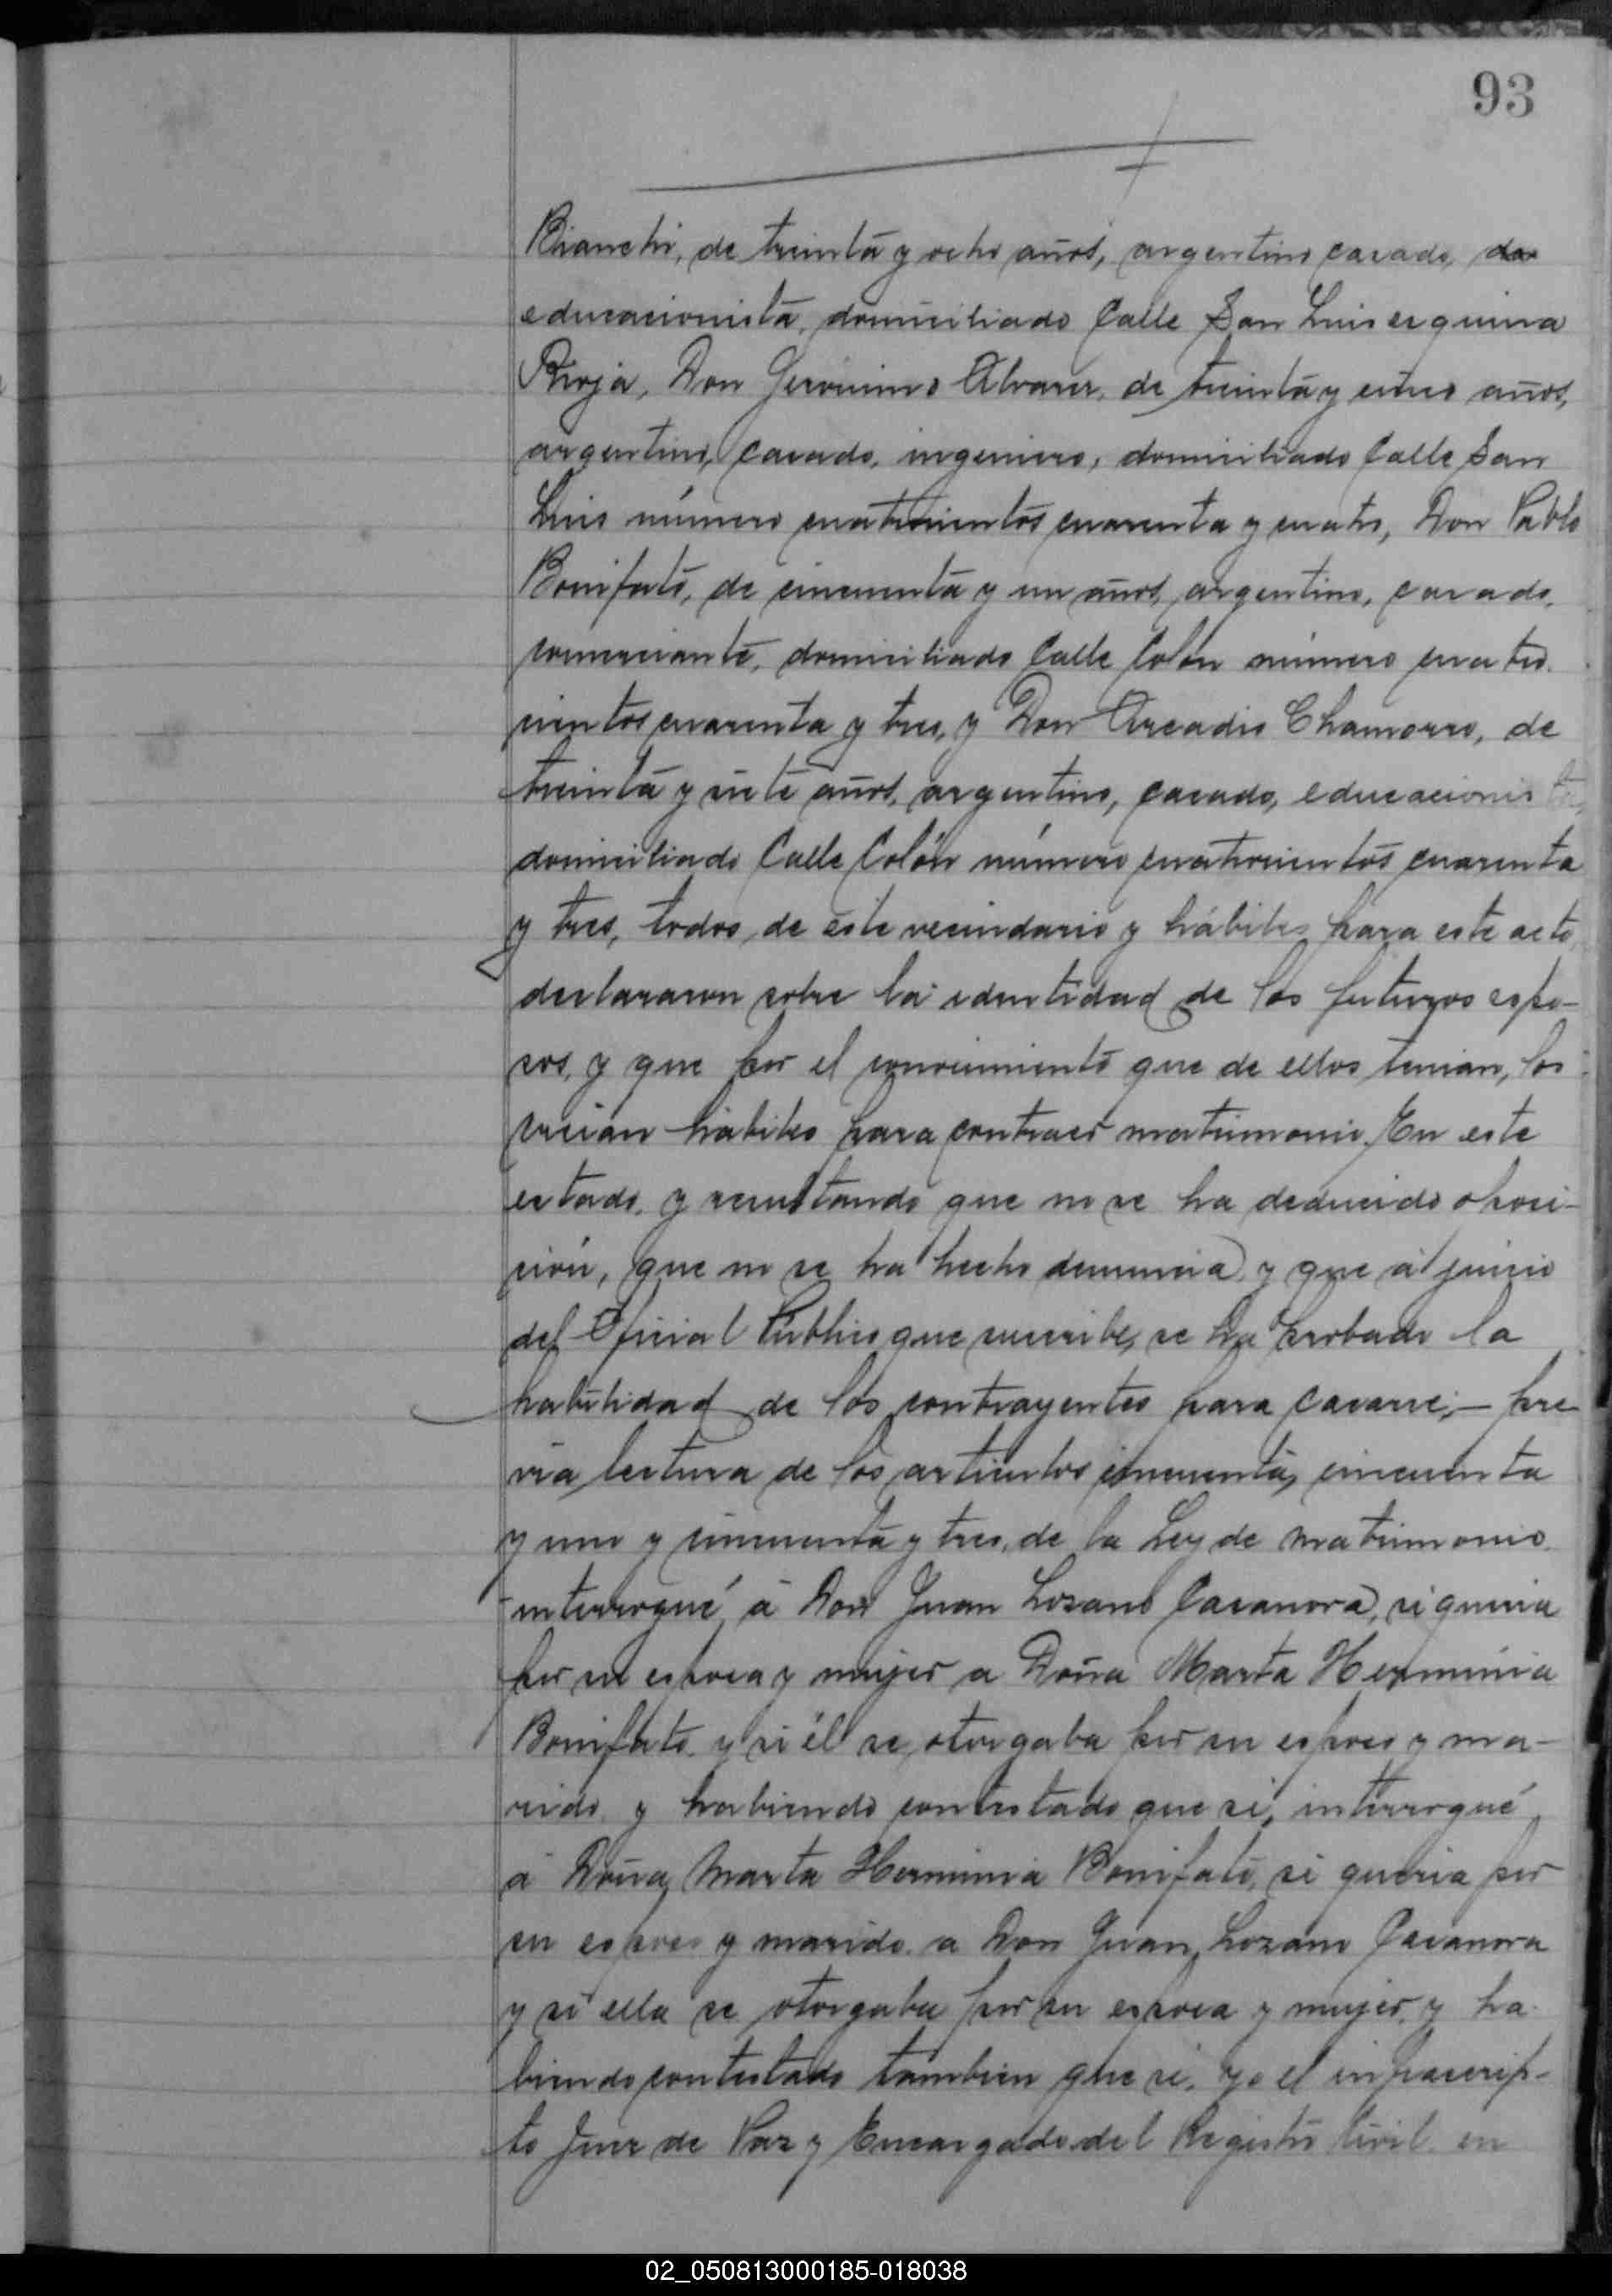 93
Bianchi, de treinta y ocho años, argentino casado, do
educacionista, domiciliado Calle San Luis esquina
Rioja, Don Gerónimo Alvarez, de treinta y cinco años,
argentino, casado, ingeniero, domiciliado Calle San
Luis número cuatrocientos cuarenta y cuatro, Don Pablo
Bonifato, de cincuenta y un años, argentino, casado,
comerciante, domiciliado Calle Colón número cuatro
cientos cuarenta y tres, y Don Arcadio Chamorro, de
treinta y siete años, argentino, casado, educacionista,
domiciliado Calle Colón número cuatrocientos cuarenta
y tres, todos de este vecindario y hábiles para este acto,
declararon sobre la identidad de los futuros espo-
sos, y que por el conocimiento que de ellos tenian, los
creian hábiles para contraer matrimonio. En este
estado, y resultando que no se ha deducido oposi-
ción, que no se ha hecho denuncia, y que á juicio
del Oficial Público que suscribe, se ha probado la
habilidad de los contrayentes para casarse; — pre
via lectura de los articulos cincuenta, cincuenta
y uno y cincuenta y tres, de la Ley de Matrimonio
interrogué á Don Juan Lozano Casanova, si queria
por su esposa y mujer a Doña Marta Herminia
Bonifato y si él se otorgaba por su esposo y ma-
rido y habiendo contestado que sí, interrogué
á Doña Marta Herminia Bonifato, si queria por
su esposo y marido a Don Juan Lozano Casanova
y si ella se otorgaba por su esposa y mujer, y ha
biendo contestado tambien que sí, yo el infrascrip-
to Juez de Paz y Encargado del Registro Civil en
02_050813000185-018038